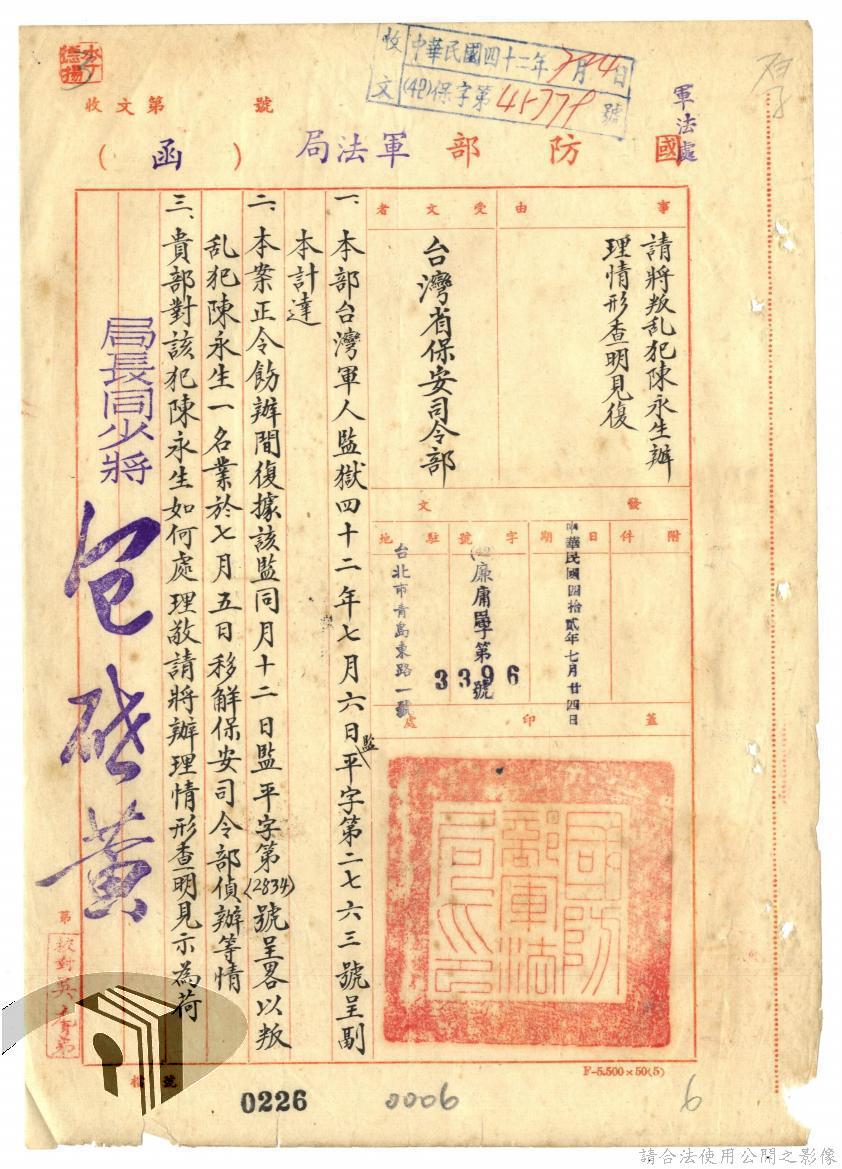 收文 中華民國四十二年7月24日
(42)保字第45779號
軍法處
收文第　號
國防部軍法局（函）
事由
請將叛乱犯陳永生辦
理情形查明見復
受文者
台灣省保安司令部
發文
附件
日期
中華民國四拾貳年七月廿四日
字號
(42)廉庸字第3396號
駐地
台北市青島東路一號
蓋印處
國防部軍法局之印
一、本部台灣軍人監獄四十二年七月六日監平字第二七六三號呈副
本計達
二、本案正令飭辦間復據該監同月十二日監平字第(2834)號呈畧以叛
乱犯陳永生一名業於七月五日移解保安司令部偵辦等情
三、貴部對該犯陳永生如何處理敬請將辦理情形查明見示為荷
局長同少將
包啟黃
校對吳
第
檔號
F-5,500×50(5)
0226
0006
6
請合法使用公開之影像